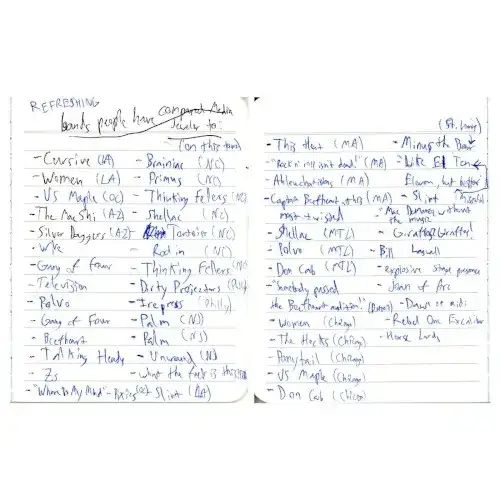 REFRESHING
bands people have compared Media
Jeweler to:
(on this tour)
- Cursive (IA)
- Women (LA)
- US Maple (OC)
- The Mae Shi (AZ)
- Silver Daggers (AZ)
- Wire
- Gang of Four
- Television
- Polvo
- Gang of Four
- Beefheart
- Talking Heads
- Zs
- "Where Is My Mind" - Pixies (OC)
- Brainiac (NC)
- Primus (NC)
- Thinking Fellers (NC)
- Shellac (NC)
- Tortoise (NC)
- Rodin (NC)
- Thinking Fellers (NC)
- Dirty Projectors
- Irepress (Philly)
- Palm (NJ)
- Palm (NJ)
- Unwound (NJ)
- what the fuck is this
- Slint (LA)
- This Heat (MA)
- "Rock n' roll isn't dead!" (MA)
- Ahleuchatistas (MA)
- Captain Beefheart + this (MA)
more twisted
- Shellac (MTL)
- Polvo (MTL)
- Don Cab (MTL)
- "Somebody passed
the Beefheart audition!" (Boston)
- Women (Chicago)
- The Hecks (Chicago)
- Ponytail (Chicago)
- US Maple (Chicago)
- Don Cab (Chicago)
(St. Louis)
- Minus the Bear
- Like El Ten
Eleven, but better
- Slint
- "Mac Demarco without
the music"
- Grafton Grafton!
- Bill
- explosive stage presence
- Joan of Arc
- Dawn of midi
- Rebel One Excalibur
- Horse Lords